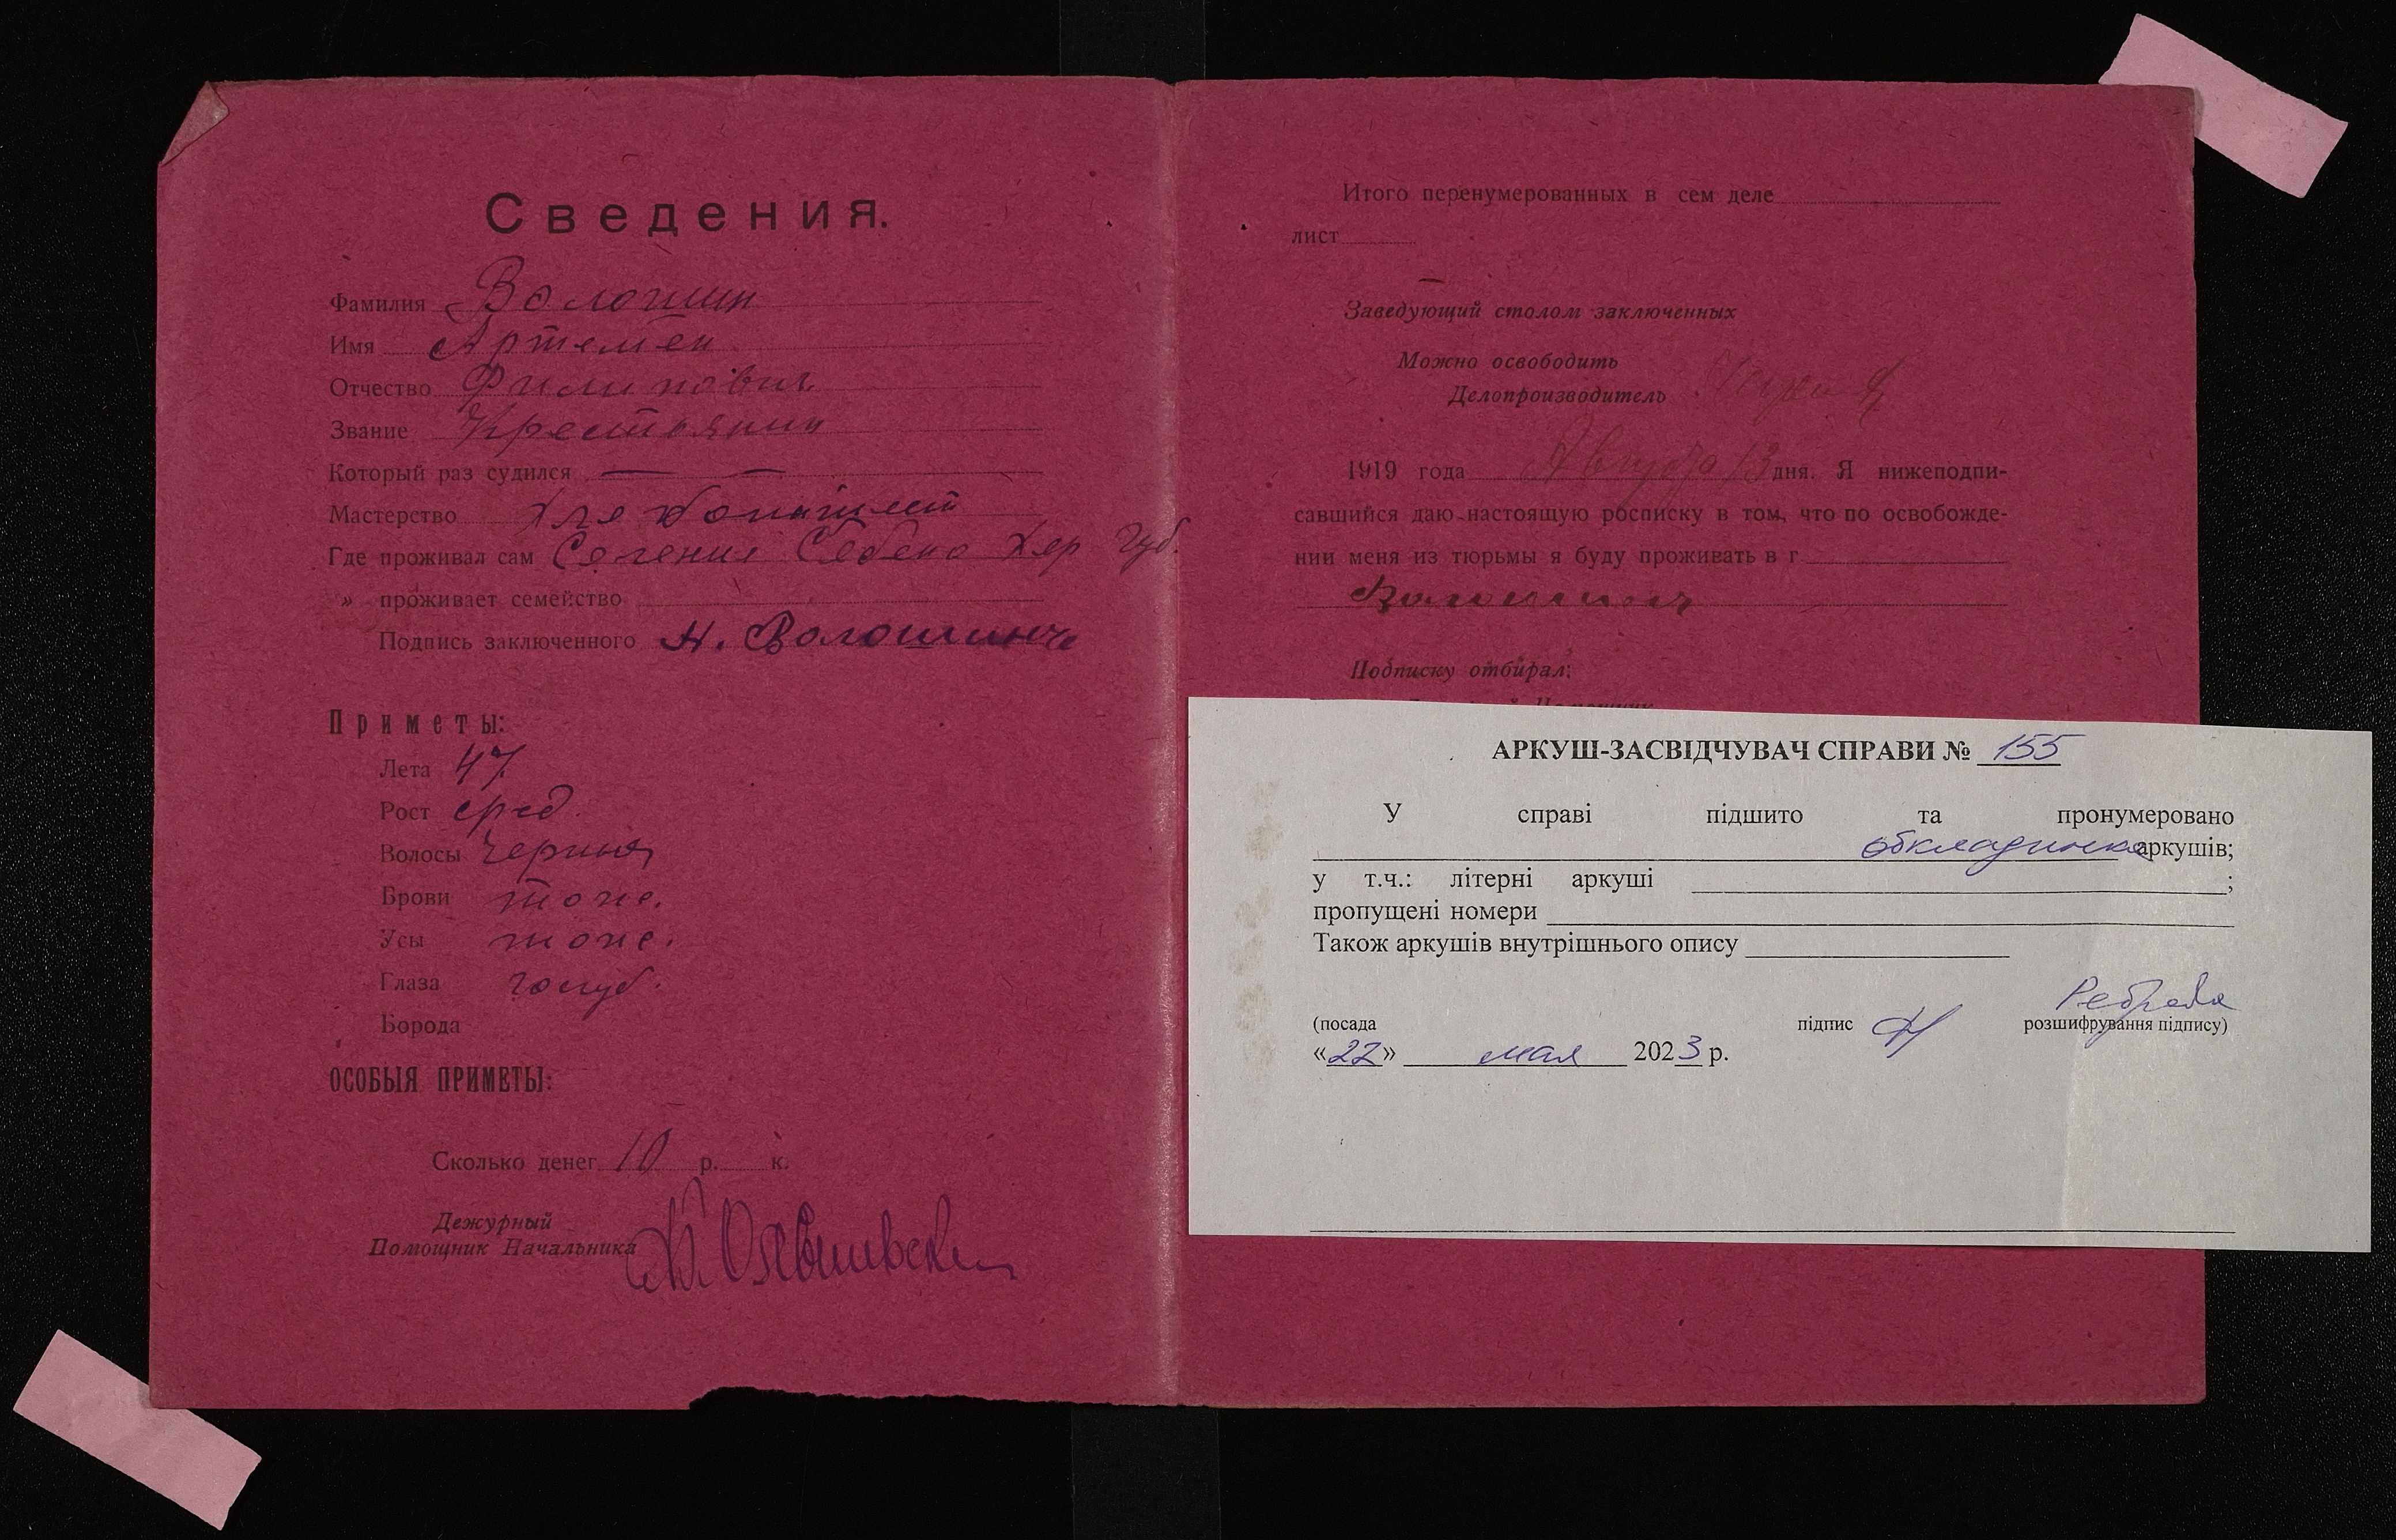 Сведения.
Фамилия Волошин
Имя Артемен
Отчество Филипович
Звание Крестьянин
Который раз судился — —
Мастерство Хлебопашест
Где проживал сам Хер Губ.
» проживает семейство
Подпись заключенного А. Волошинъ
Приметы:
Лета 47
Рост сред.
Волосы черныя
Брови тоже.
Усы тоже.
Глаза голуб.
Борода
ОСОБЫЯ ПРИМЕТЫ:
Сколько денег 10 р. к.
Дежурный
Помощник Начальника
Итого перенумерованных в сем деле
лист
Заведующий столом заключенных
Можно освободить
Делопроизводитель
1919 года Августа 13 дня. Я нижеподпи-
савшийся даю настоящую росписку в том, что по освобожде-
нии меня из тюрьмы я буду проживать в г
Волошинъ
Подписку отбирал:
АРКУШ-ЗАСВІДЧУВАЧ СПРАВИ № 155
У справі підшито та пронумеровано
обкладинка аркушів;
у т.ч.: літерні аркуші ;
пропущені номери
Також аркушів внутрішнього опису
(посада підпис розшифрування підпису)
«22» мая 2023 р.